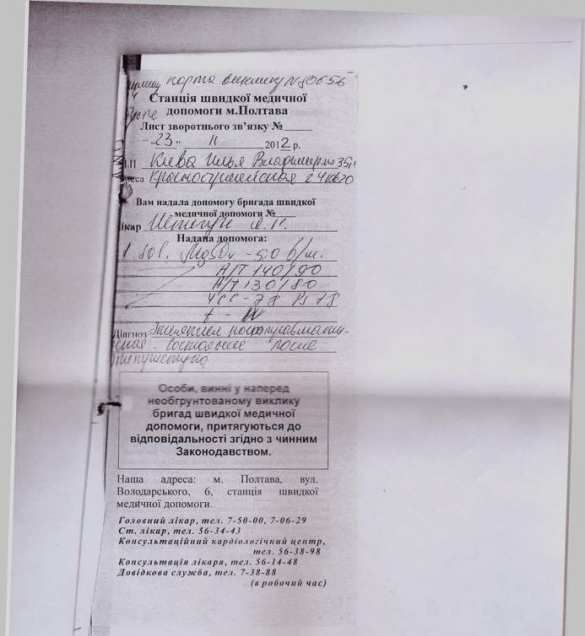 карта виклику №80656
Станція швидкої медичної
допомоги м.Полтава
Лист зворотнього зв'язку №
"23" 11 2012 р.
Киева Илья Владимирович 35л
24 кв 20
Вам надала допомогу бригада швидкої
медичної допомоги №
Лікар
Надана допомога:
Sol. MgSO4 - 5,0 в/м.
А/Т 140/90
А/Т 130/80
ЧСС - 78 Ps 78
t - N
Діагноз
состояние после
Особи, винні у наперед
необгрунтованому виклику
бригад швидкої медичної
допомоги, притягуються до
відповідальності згідно з чинним
Законодавством.
Наша адреса: м. Полтава, вул.
Володарського, 6, станція швидкої
медичної допомоги.
Головний лікар, тел. 7-50-00, 7-06-29
Ст. лікар, тел. 56-34-43
Консультаційний кардіологічний центр,
тел. 56-38-98
Консультація лікаря, тел. 56-14-48
Довідкова служба, тел. 7-38-88
(в робочий час)